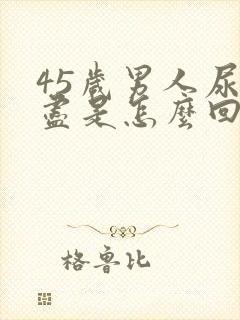 45歲男人尿
盡是怎麼回
格魯比